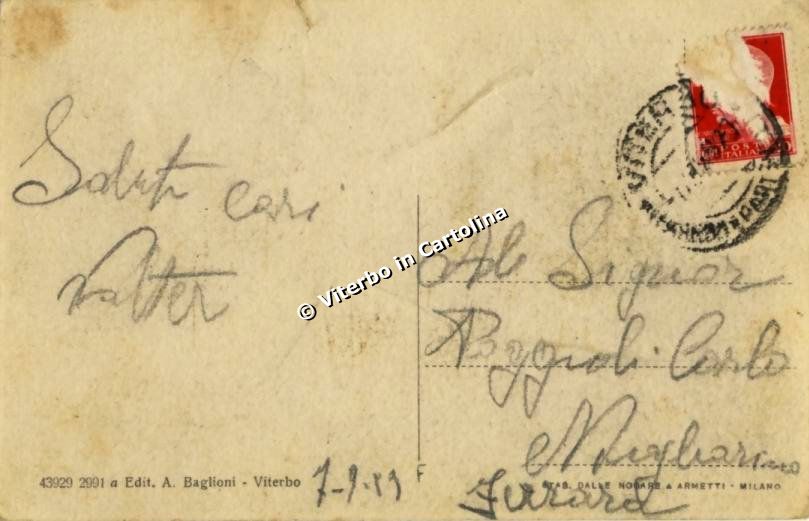 Saluti cari
Valter
VITERBO
POSTE
ITALIANE
© Viterbo in Cartolina
Al Signor
Poggioli Carlo
Migliarino
Ferrara
43929 2991 a Edit. A. Baglioni - Viterbo
F
STAB. DALLE NOGARE & ARMETTI - MILANO